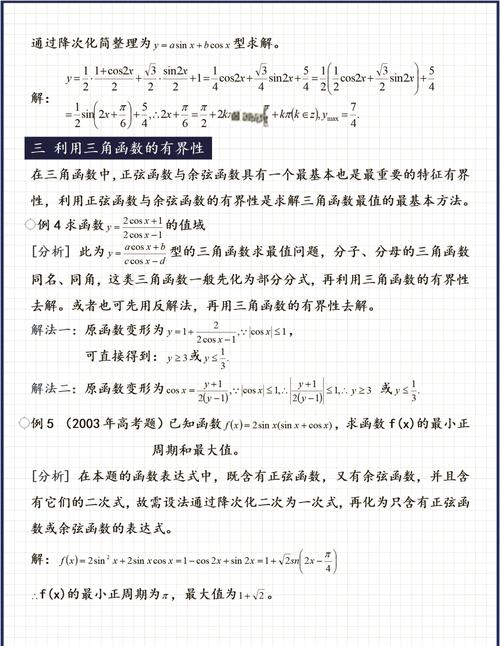 通过降次化简整理为 y = a sin x + b cos x 型求解。
解: y = 1/2 · (1+cos2x)/2 + √3/2 · (sin2x)/2 + 1 = 1/4 cos2x + √3/4 sin2x + 5/4 = 1/2 (1/2 cos2x + √3/2 sin2x) + 5/4
= 1/2 sin(2x + π/6) + 5/4, ∴ 2x + π/6 = π/2 + 2k + kπ(k∈z), y_max = 7/4.
三 利用三角函数的有界性
在三角函数中,正弦函数与余弦函数具有一个最基本也是最重要的特征有界
性,利用正弦函数与余弦函数的有界性是求解三角函数最值的最基本方法。
例 4 求函数 y = (2cos x+1)/(2cos x−1) 的值域
[分析] 此为 y = (a cos x + b)/(c cos x − d) 型的三角函数求最值问题,分子、分母的三角函数
同名、同角,这类三角函数一般先化为部分分式,再利用三角函数的有界性
去解。或者也可先用反解法,再用三角函数的有界性去解。
解法一: 原函数变形为 y = 1 + 2/(2cos x − 1), ∵ |cos x| ≤ 1,
可直接得到: y ≥ 3 或 y ≤ 1/3.
解法二: 原函数变形为 cos x = (y+1)/(2(y−1)), ∵ |cos x| ≤ 1, ∴ |(y+1)/(2(y−1))| ≤ 1, ∴ y ≥ 3 或 y ≤ 1/3.
例 5 (2003 年高考题) 已知函数 f(x) = 2sin x(sin x + cos x),求函数 f(x)的最小正
周期和最大值。
[分析] 在本题的函数表达式中,既含有正弦函数,又有余弦函数,并且含
有它们的二次式,故需设法通过降次化二次为一次式,再化为只含有正弦函
数或余弦函数的表达式。
解: f(x) = 2sin² x + 2sin x cos x = 1 − cos 2x + sin 2x = 1 + √2 sn(2x − π/4)
∴f(x)的最小正周期为 π,最大值为 1 + √2 。